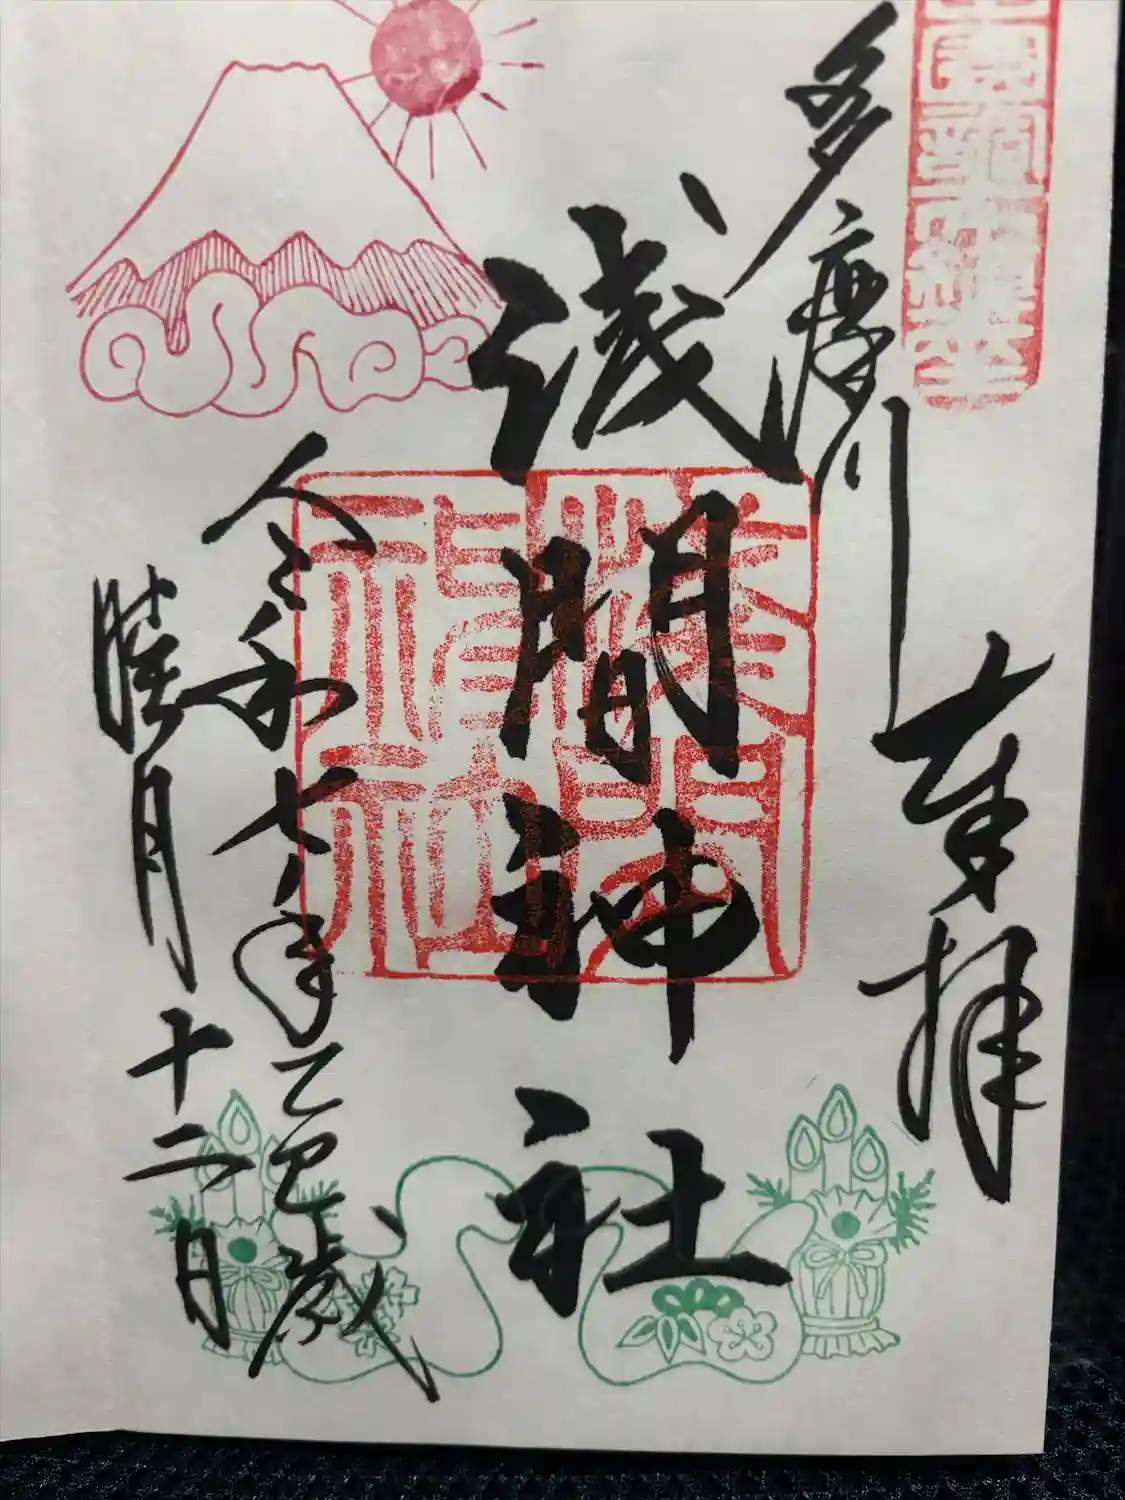 奉拝
多摩川
浅間神社
淺間神社
令和七年乙巳歳
睦月十二日